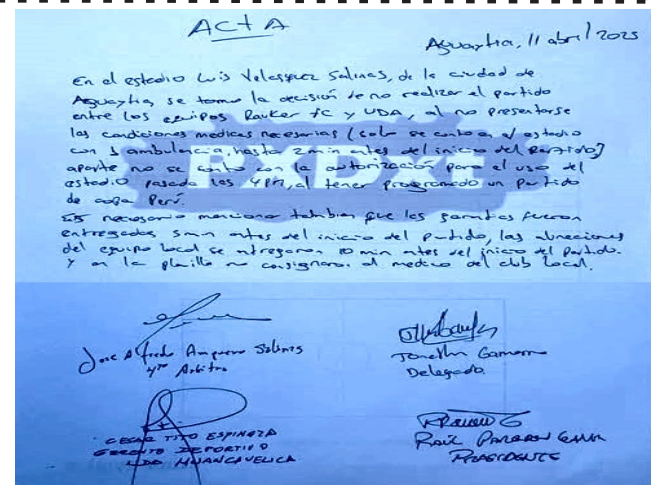 ACTA
Aguaytia, 11 abril 2025
En el estadio Luis Velasquez Salinas, de la ciudad de
Aguaytia, se tomo la decisión de no realizar el partido
entre los equipos Rauker FC y UDA, al no presentarse
las condiciones medicas necesarias (solo se conto en el estadio
con 1 ambulancia, hasta 2 min antes del inicio del partido)
aparte no se conto con la autorización para el uso del
estadio pasada las 4pm, al tener programado un partido
de copa Perú.
Es necesario mencionar tambien que las garantias fueron
entregadas 5 min antes del inicio del partido, las alineaciones
del equipo local se entregaron 10 min antes del inicio del partido.
Y en la planilla no consignaron al medico del club local.
PXDXT
Jose Alfredo Amquero Salinas
4to Arbitro
Jonathn Gamarra
Delegado
CESAR TITO ESPINOZA
GERENTE DEPORTIVO
UDA HUANCAVELICA
Raúl
PRESIDENTE